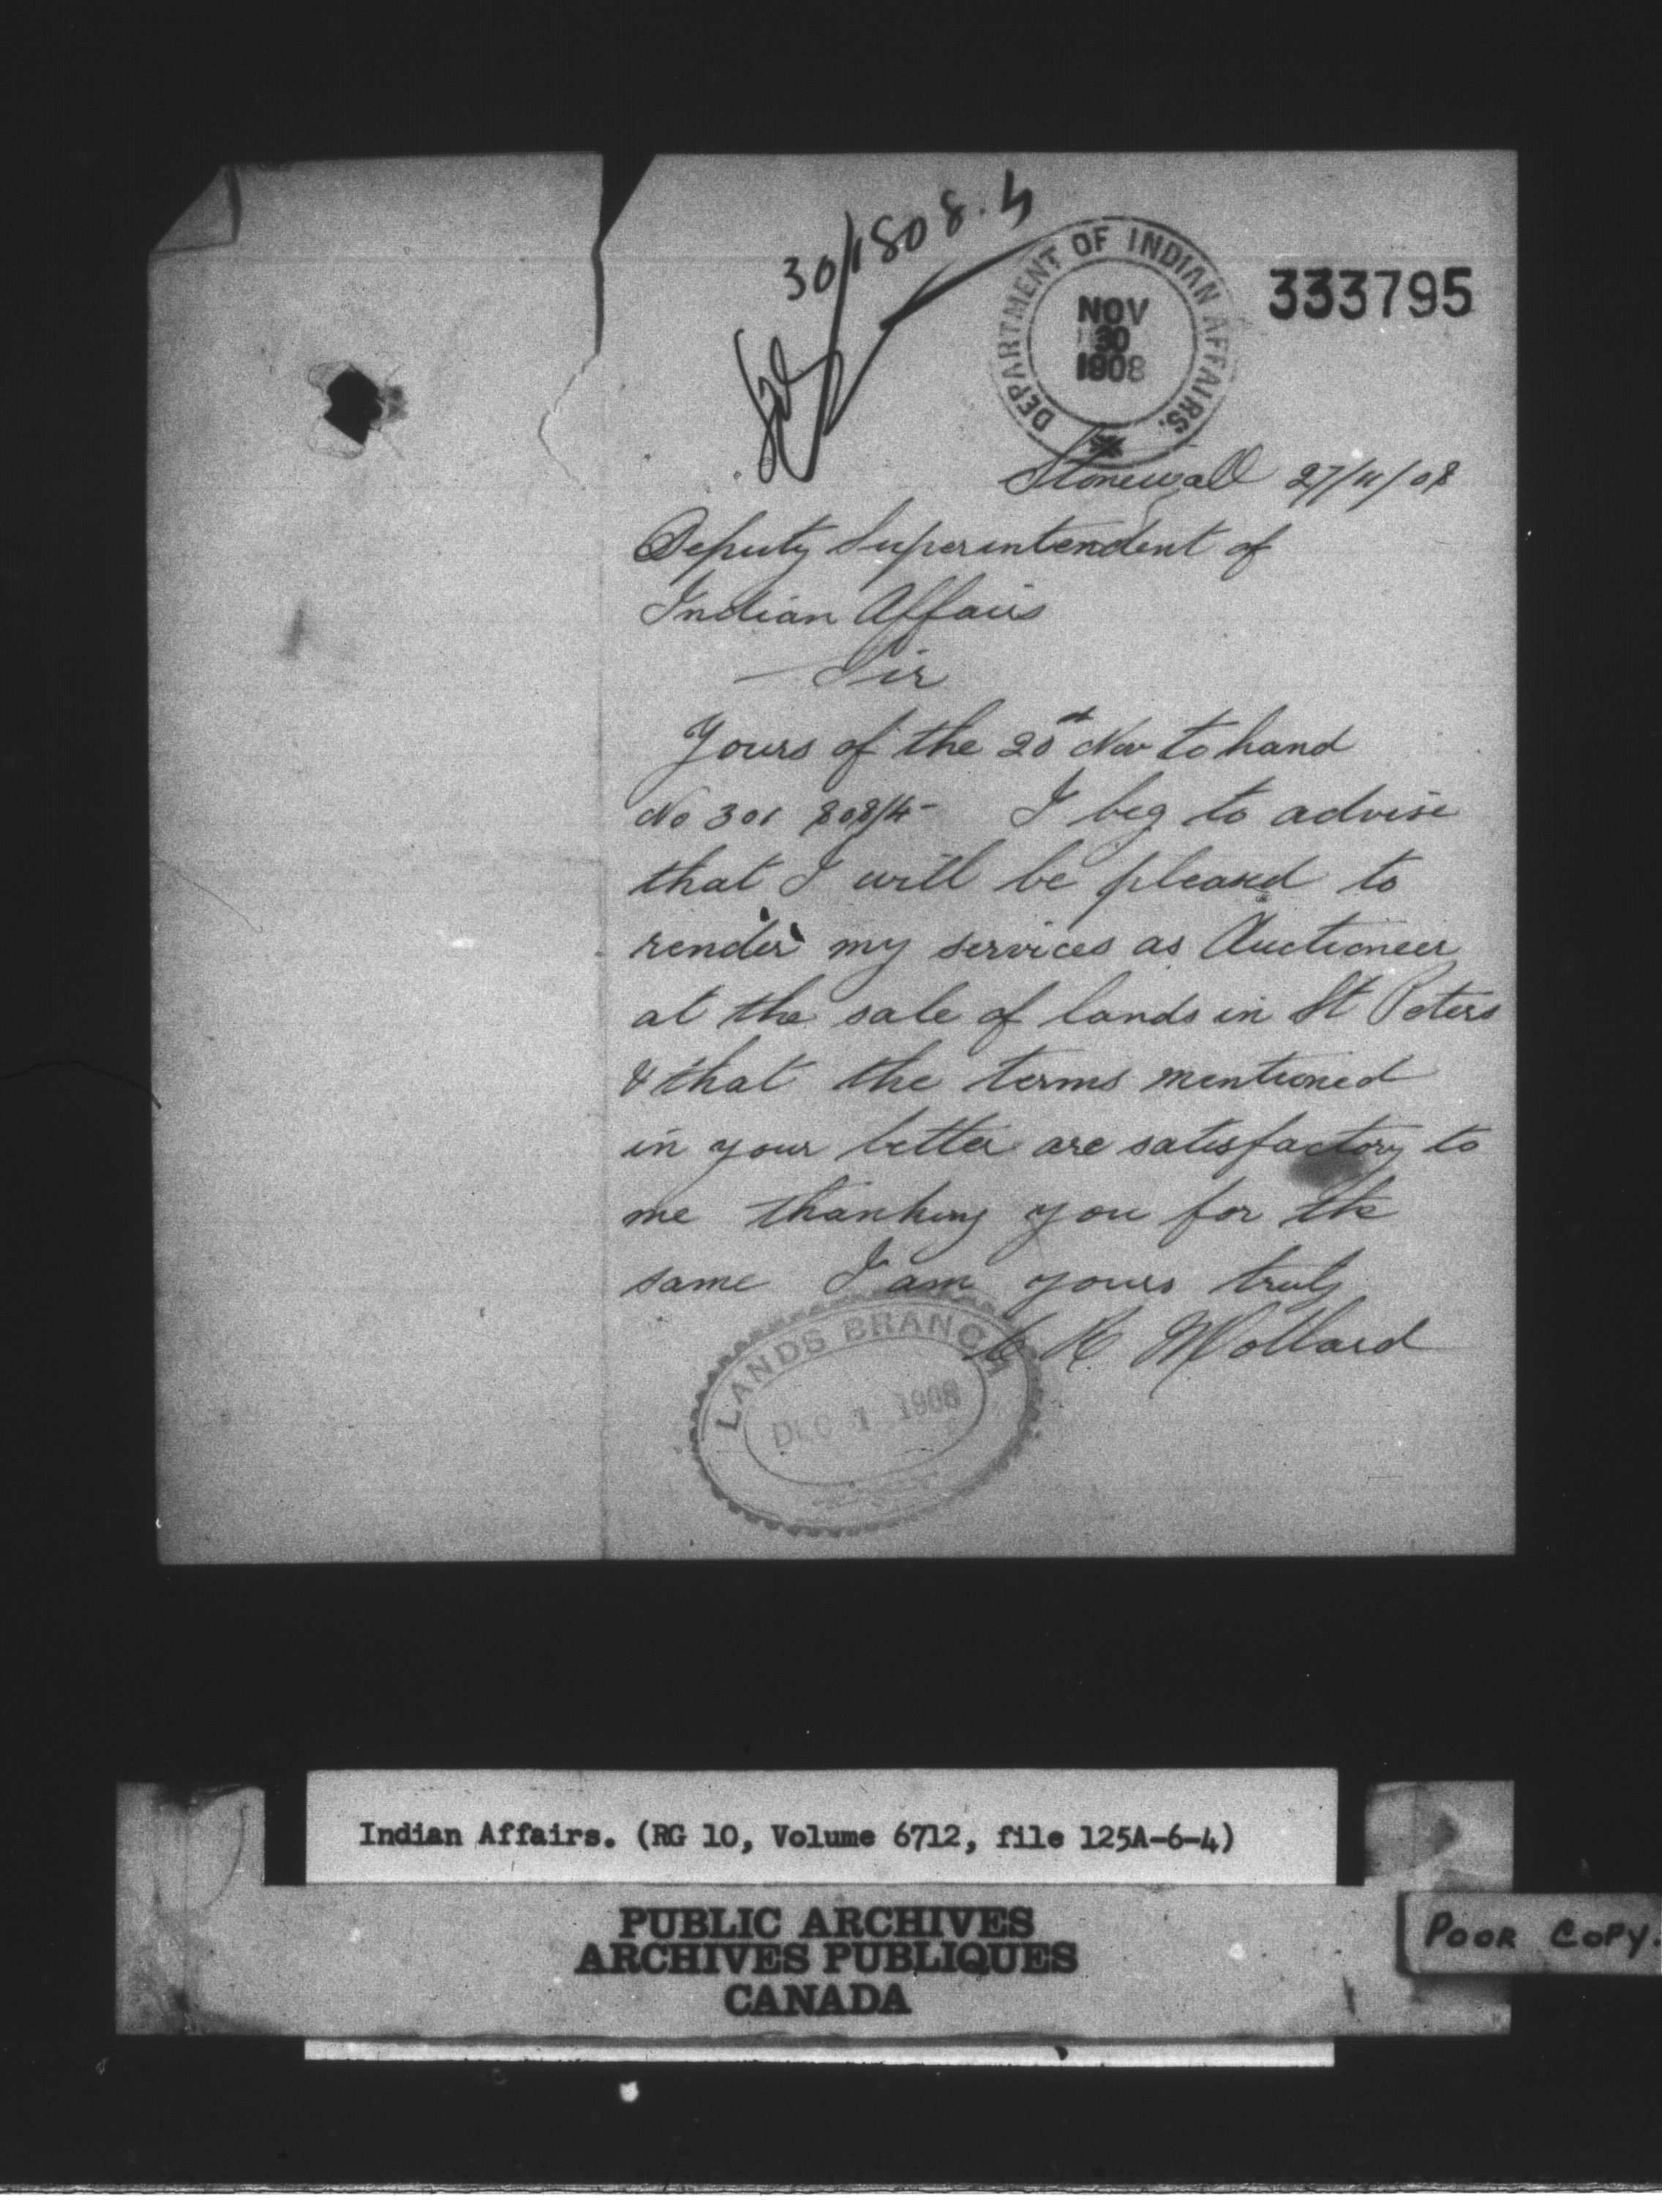 301808.4
DEPARTMENT OF INDIAN AFFAIRS.
NOV
30
1908
333795
Stonewall 27/11/08
Deputy Superintendent of
Indian Affairs
— Sir
Yours of the 20st Nov to hand
No 301 808/4- I beg to advise
that I will be pleased to
render my services as Auctioneer
at the sale of lands in St Peters
& that the terms mentioned
in your letter are satisfactory to
me thanking you for the
same I am yours truly
R. Mollard
LANDS BRANCH
DEC 1 1908
Indian Affairs. (RG 10, Volume 6712, file 125A-6-4)
PUBLIC ARCHIVES
ARCHIVES PUBLIQUES
CANADA
POOR COPY.